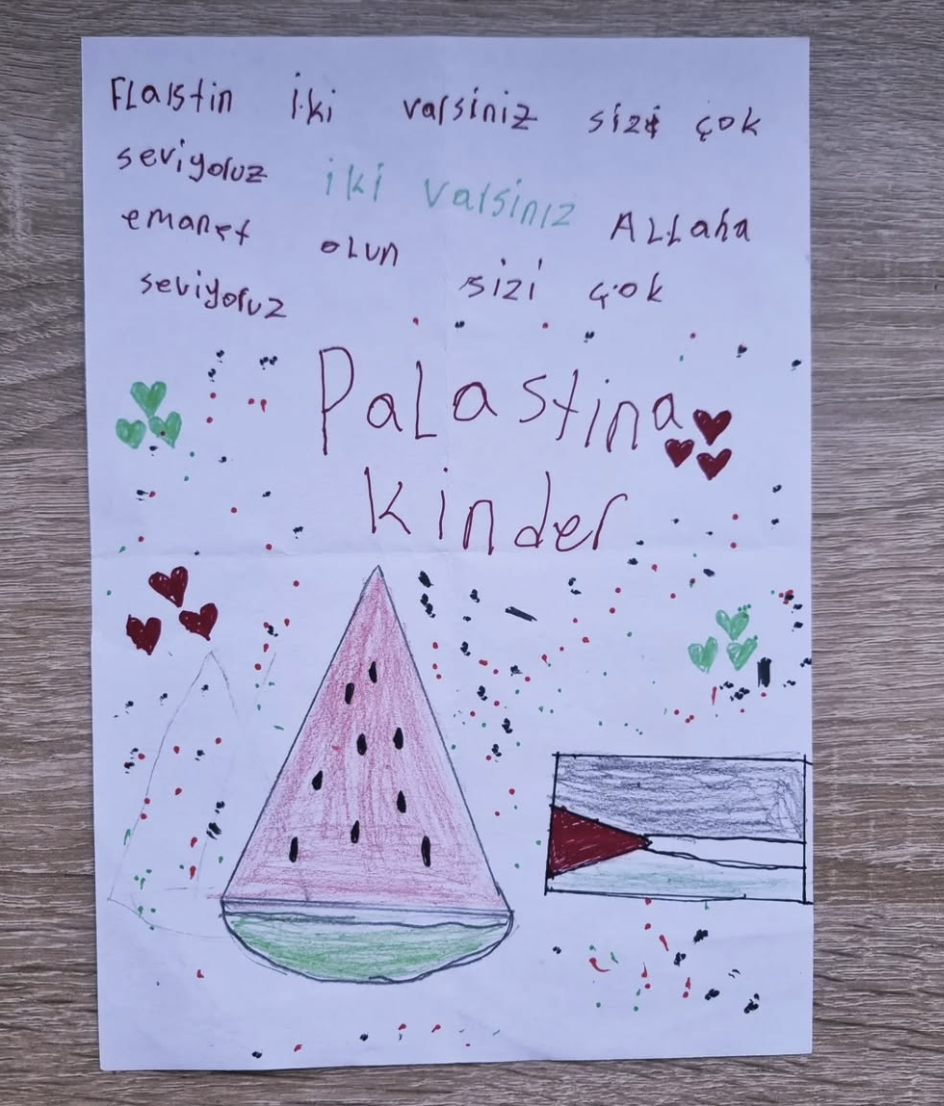 Flaistin iki varsiniz sizi çok
seviyoruz iki varsiniz Allaha
emanet olun sizi çok
seviyoruz
Palastina
Kinder